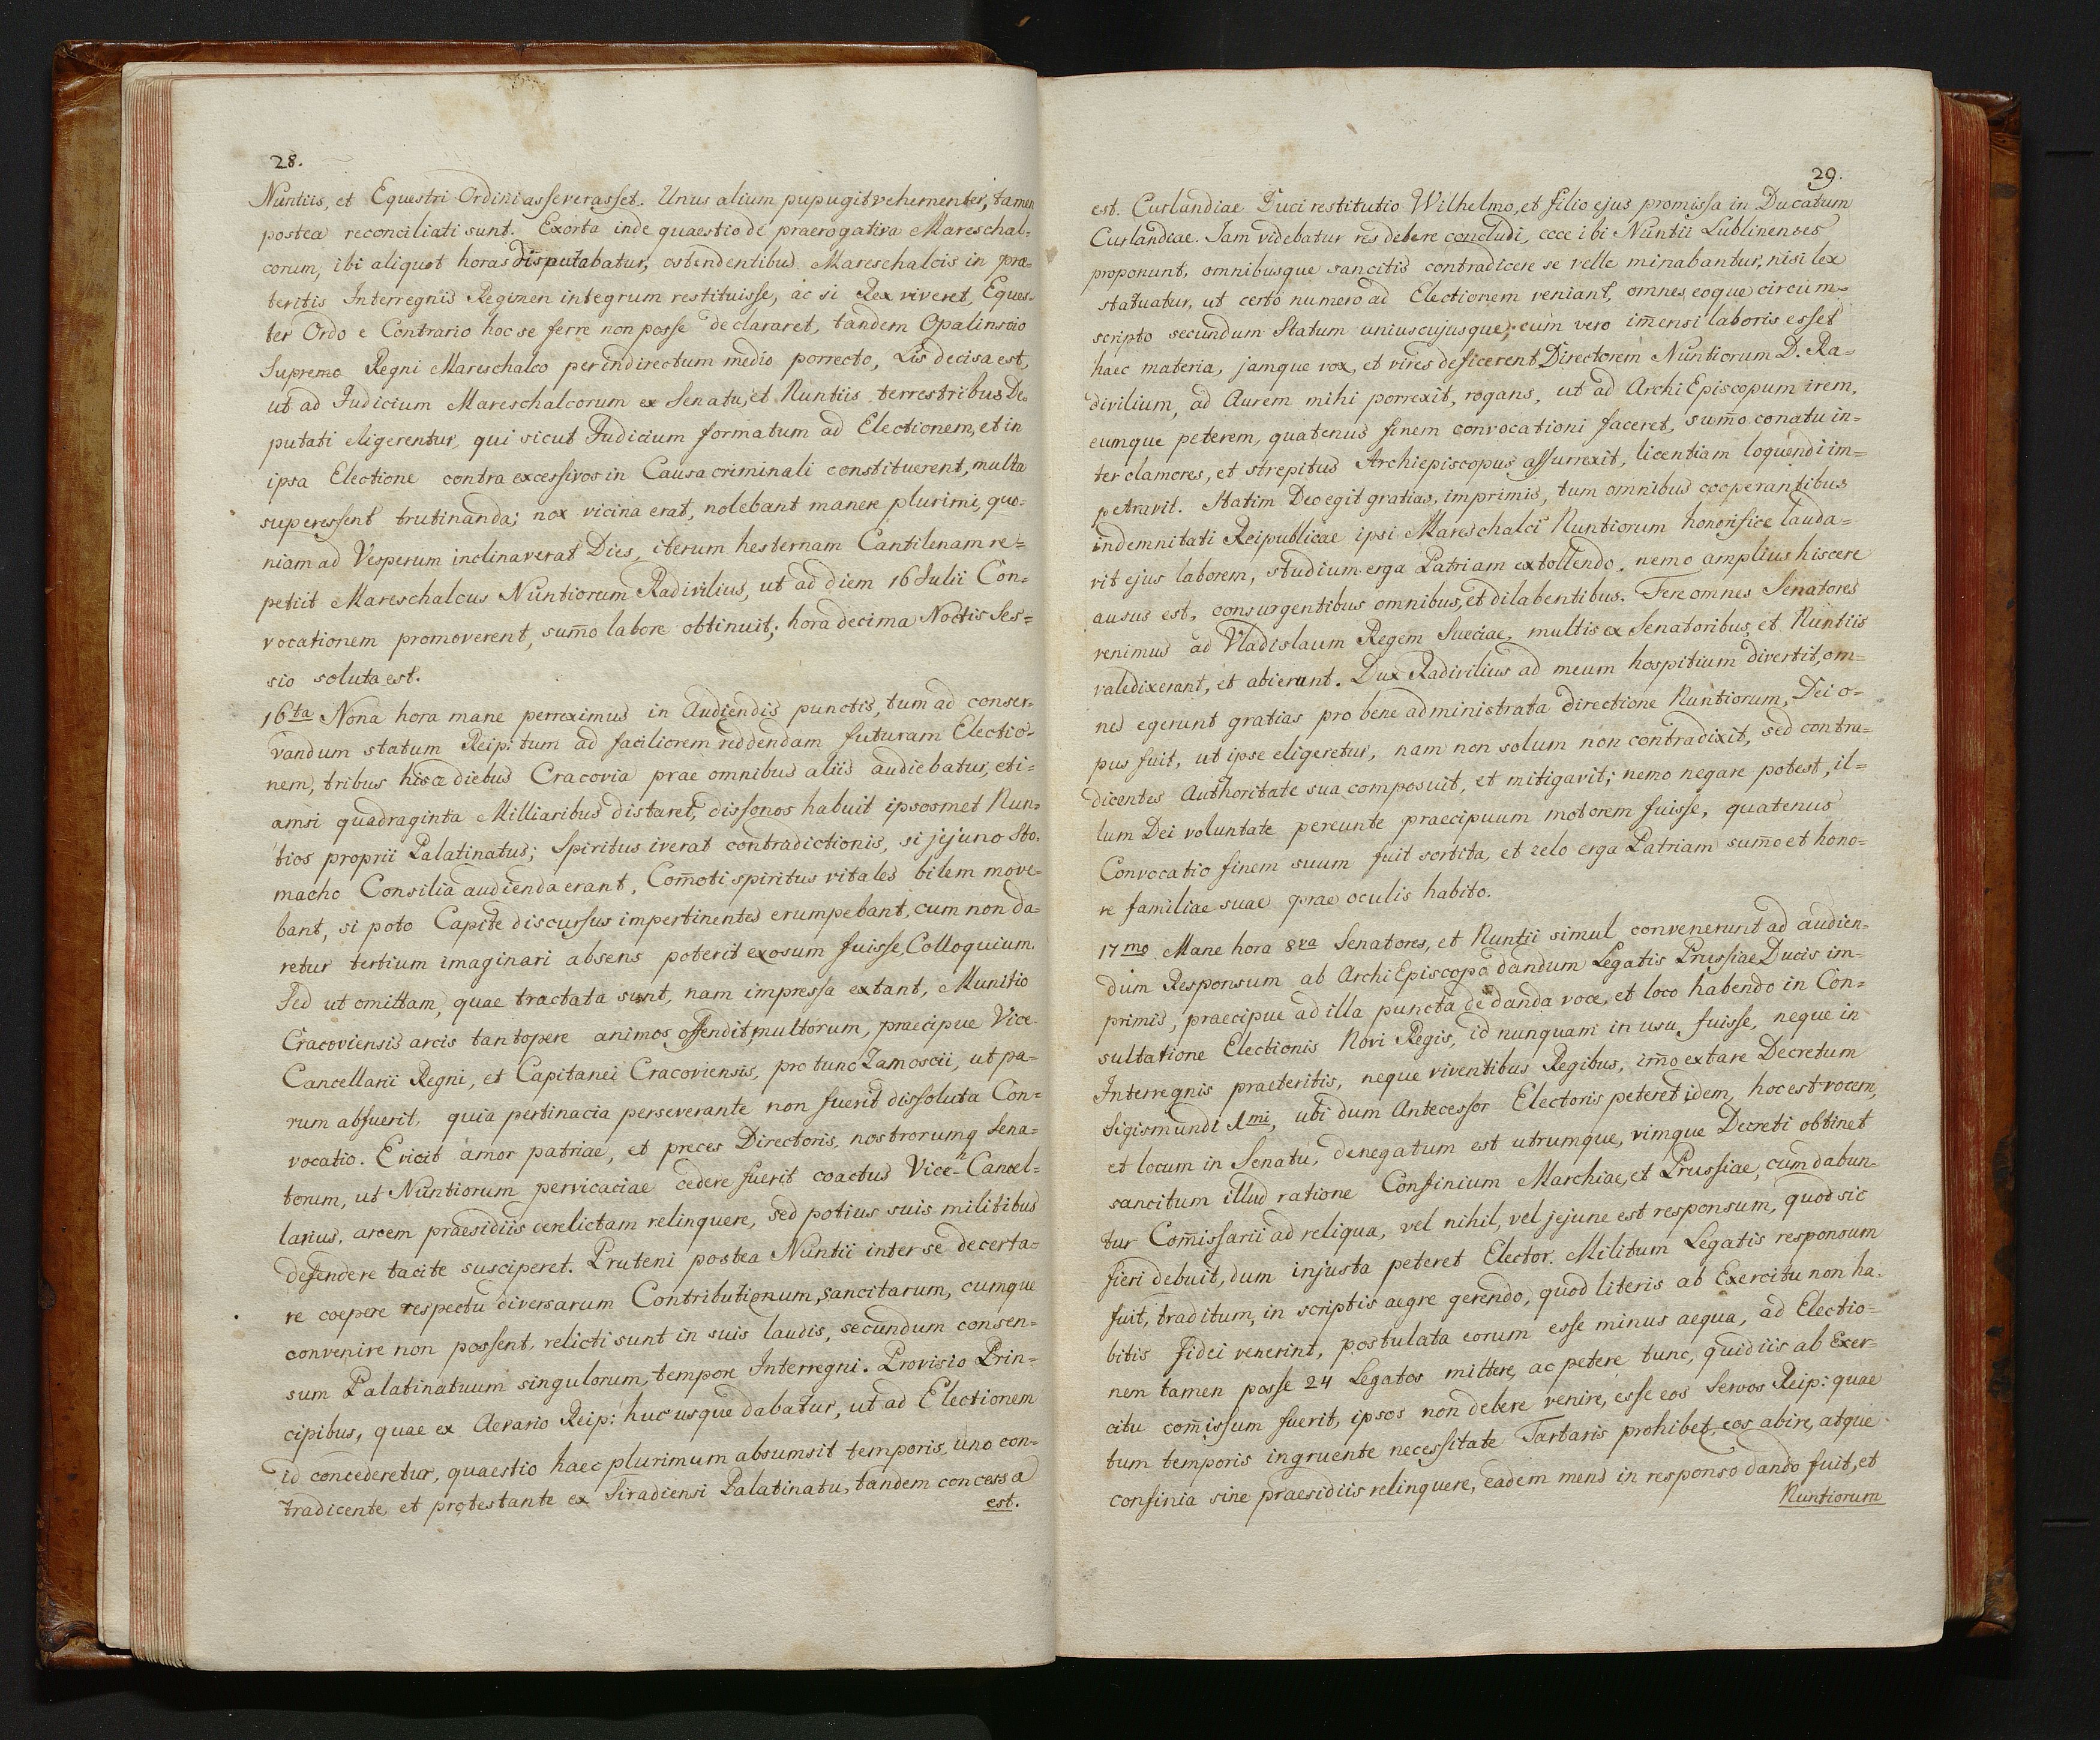 28.
Nuntiis, et Equestri Ordini asseverasset. Unus alium pupugit vehementer, tamen
postea reconciliati sunt. Exorta inde quaestio de praerogativa Mareschal-
corum, ibi aliquot horas disputabatur, ostendentibus Mareschalcis in prae-
teritis Interregnis Regimen integrum restituisse, ac si Rex viveret, Eques-
ter Ordo e Contrario hoc se ferre non posse declararet, tandem Opalinscio
Supremo Regni Mareschalco per indirectum medio porrecto, Lis decisa est,
ut ad Judicium Mareschalcorum ex Senatu, et Nuntiis terrestribus De-
putati eligerentur, qui sicut Judicium formatum ad Electionem, et in
ipsa Electione contra excessivos in Causa criminali constituerent, multa
superessent trutinanda; nox vicina erat, nolebant manere plurimi, quo-
niam ad Vesperum inclinaverat Dies, iterum hesternam Cantilenam re-
petiit Mareschalcus Nuntiorum Radivilius, ut ad diem 16 Julii Con-
vocationem promoverent, sum̄o labore obtinuit; hora decima Noctis Ses-
sio soluta est.
16ta Nona hora mane perreximus in Audiendis punctis, tum ad conser-
vandum statum Reip: tum ad faciliorem reddendam futuram Electio-
nem, tribus hisce diebus Cracovia prae omnibus aliis audiebatur, eti-
amsi quadraginta Milliaribus distaret, dissonos habuit ipsosmet Nun-
tios proprii Palatinatus; Spiritus iverat contradictionis, si jejuno Sto-
macho Consilia audienda erant, Com̄oti spiritus vitales bilem move-
bant, si poto Capite discursus impertinentes erumpebant, cum non da-
retur tertium imaginari absens poterit exosum fuisse Colloquium.
Sed ut omittam, quae tractata sunt, nam impressa extant, Munitio
Cracoviensis arcis tantopere animos offendit multorum, praecipue Vice
Cancellarii Regni, et Capitanei Cracoviensis, pro tunc Zamoscii, ut pa-
rum abfuerit, quia pertinacia perseverante non fuerit dissoluta Con-
vocatio. Evicit amor patriae, et preces Directoris, nostrorumq Sena-
torum, ut Nuntiorum pervicaciae cedere fuerit coactus Vice-Cancel-
larius, arcem praesidiis derelictam relinquere, sed potius suis militibus
defendere tacite susciperet. Pruteni postea Nuntii inter se decerta-
re coepere respectu diversarum Contributionum, sancitarum, cumque
convenire non possent, relicti sunt in suis laudis, secundum consen-
sum Palatinatuum singulorum, tempore Interregni. Provisio Prin-
cipibus, quae ex Aerario Reip: hucusque dabatur, ut ad Electionem
id concederetur, quaestio haec plurimum absumsit temporis, uno con-
tradicente et protestante ex Siradiensi Palatinatu, tandem concessa
est.
29.
est. Curlandiae Duci restitutio Wilhelmo, et filio ejus promissa in Ducatum
Curlandiae. Jam videbatur res debere concludi, ecce ibi Nuntii Lublinenses
proponunt, omnibusque sancitis contradicere se velle minabantur, nisi lex
statuatur, ut certo numero ad Electionem veniant, omnes, eoque circum-
scripto secundum Statum uniuscujusque; cum vero im̄ensi laboris esset
haec materia, jamque vox, et vires deficerent Directorem Nuntiorum D. Ra-
divilium, ad Aurem mihi porrexit, rogans, ut ad ArchiEpiscopum irem,
eumque peterem, quatenus finem convocationi faceret, sum̄o conatu in-
ter clamores, et strepitus Archiepiscopus assurrexit, licentiam loquendi im-
petravit. Statim Deo egit gratias, imprimis, tum omnibus cooperantibus
indemnitati Reipublicae ipsi Mareschalci Nuntiorum honorifice lauda-
vit ejus laborem, studium erga Patriam extollendo. nemo amplius hiscere
ausus est, consurgentibus omnibus, et dilabentibus. Fere omnes Senatores
venimus ad Vladislaum Regem Sueciae, multis ex Senatoribus, et Nuntiis
valedixerant, et abierunt. Dux Radivilius ad meum hospitium divertit, om-
nes egerunt gratias pro bene administrata directione Nuntiorum. Dei o-
pus fuit, ut ipse eligeretur, nam non solum non contradixit, sed contra-
dicentes Authoritate sua composuit, et mitigavit; nemo negare potest, il-
lum Dei voluntate pereunte praecipuum motorem fuisse, quatenus
Convocatio finem suum fuit sortita, et zelo erga Patriam sum̄o et hono-
re familiae suae prae oculis habito.
17mo Mane hora 8va Senatores, et Nuntii simul convenerunt ad audien-
dum Responsum ab ArchiEpiscopo dandum Legatis Prussiae Ducis im-
primis, praecipue ad illa puncta de danda voce, et loco habendo in Con-
sultatione Electionis Novi Regis, id nunquam in usu fuisse, neque in
Interregnis praeteritis, neque viventibus Regibus, im̄o extare Decretum
Sigismundi 1mi, ubi dum Antecessor Electoris peteret idem, hoc est vocem,
et locum in Senatu, denegatum est utrumque, vimque Decreti obtinet
sancitum illud ratione Confinium Marchiae, et Prussiae, cum dabun-
tur Com̄issarii ad reliqua, vel nihil, vel jejune est responsum, quod sic
fieri debuit, dum injusta peteret Elector. Militum Legatis responsum
fuit, traditum, in scriptis aegre gerendo, quod literis ab Exercitu non ha-
bitis fidei venerint, postulata eorum esse minus aequa, ad Electio-
nem tamen posse 24 Legatos mittere, ac petere tunc, quid iis ab Exer-
citu com̄issum fuerit, ipsos non debere venire, esse eos Servos Reip: quae
tum temporis ingruente necessitate Tartaris prohibet, eos abire, atque
confinia sine praesidiis relinquere, eadem mens in responso dando fuit, et
Nuntiorum